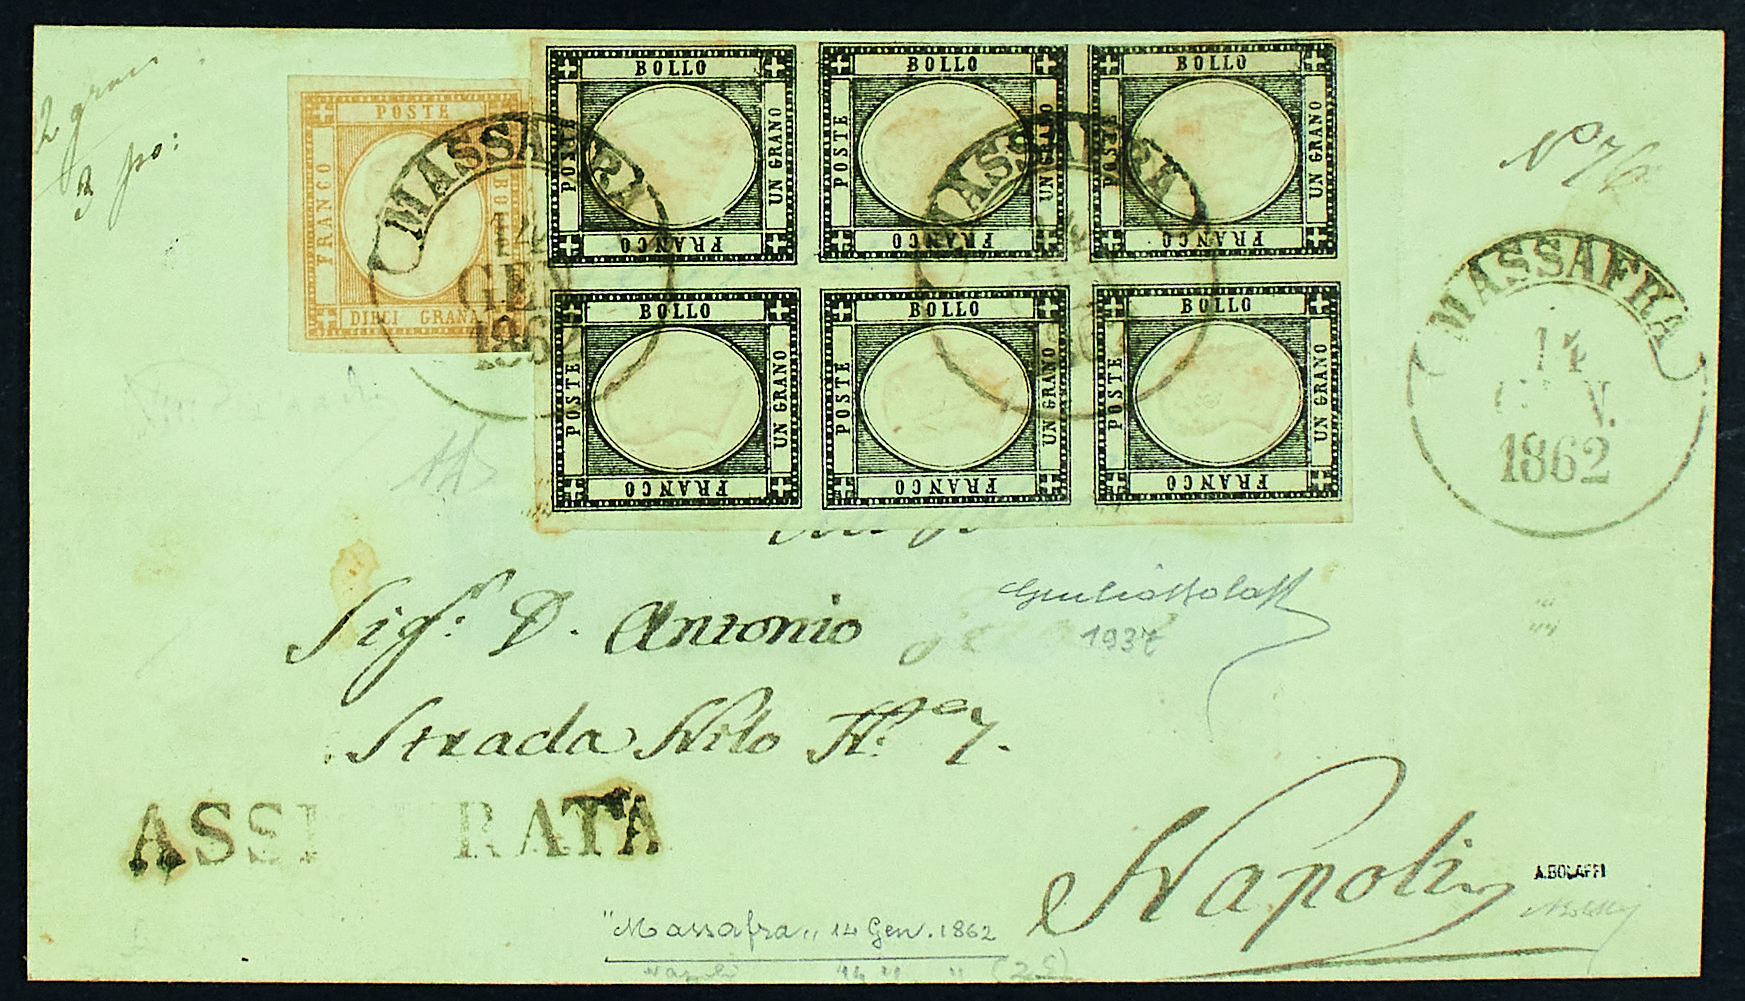 2 grana
3 po:
POSTE
FRANCO
BOLLO
DIECI GRANA
BOLLO
POSTE
UN GRANO
FRANCO
BOLLO
POSTE
UN GRANO
FRANCO
BOLLO
POSTE
UN GRANO
FRANCO
BOLLO
POSTE
UN GRANO
FRANCO
BOLLO
POSTE
UN GRANO
FRANCO
BOLLO
POSTE
UN GRANO
FRANCO
MASSAFRA
14
GEN
1862
MASSAFRA
14
MASSAFRA
14
GEN.
1862
Sigr. D. Antonio
Giulio Bolaffi
1937
Strada Nilo No 7.
ASSICURATA
Napoli
A. BOLAFFI
"Massafra" 14 Gen. 1862
Napoli 14 " "